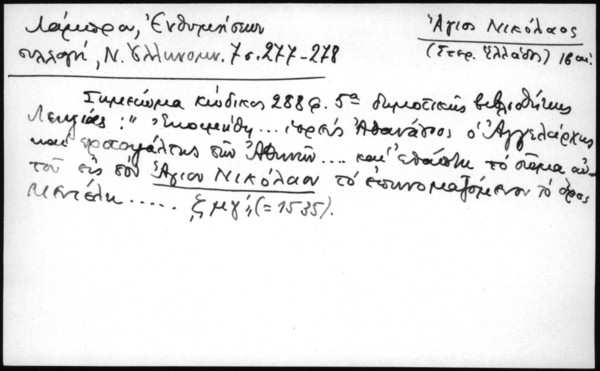 Λάμπρου, Ἐνθυμήσεων
συλλογή, Ν. Ἑλληνομν. 7 σ. 277-278
Ἅγιος Νικόλαος
(Στερ. Ἑλλάδος) 16 αἰ.
Σημείωμα κώδικος 288 φ. 5α δημοτικῆς βιβλιοθήκης
Λειψίας: " Ἐκοιμήθη... ἱερεὺς Ἀθανάσιος ὁ Ἀγγελάρχης
καὶ πρωτοψάλτης τῶν Ἀθηνῶν.... καὶ ἐθάπτη τὸ σῶμα αὐ-
τοῦ εἰς τὸν Ἅγιον Νικόλαον τὸ ἐπινομαζόμενον τὸ ὄρος
Μεντέλη ..... ζμγ΄ (= 1535).